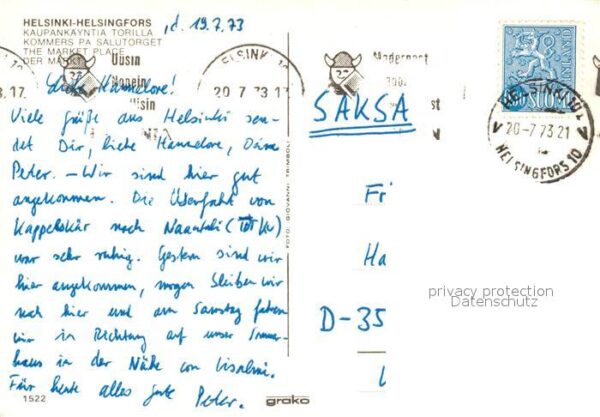 HELSINKI-HELSINGFORS
KAUPANKÄYNTIÄ TORILLA
KOMMERS PÅ SALUTORGET
THE MARKET PLACE
DER MARKT
,d. 19.7.73
Liebe Hannelore!
Viele Grüße aus Helsinki sen-
det Dir, liebe Hannelore, Dein
Peter. – Wir sind hier gut
angekommen. Die Überfahrt von
Kappelskär nach Naantali (
war sehr ruhig. Gestern sind wir
hier angekommen, morgen bleiben wir
noch hier und am Samstag fahren
wir in Richtung auf unser Sommer-
haus in der Nähe von Iisalmi.
Für heute alles Gute Peter.
1522
FOTO: GIOVANNI TRIMBOLI
grako
Uusin
Nopein
HELSINKI 10
20-7 73.17
Modernast
SUOMI FINLAND
HELSINKI 10
20-7 73 21
HELSINGFORS 10
SAKSA
Fr
Ha
D-35
privacy protection
Datenschutz